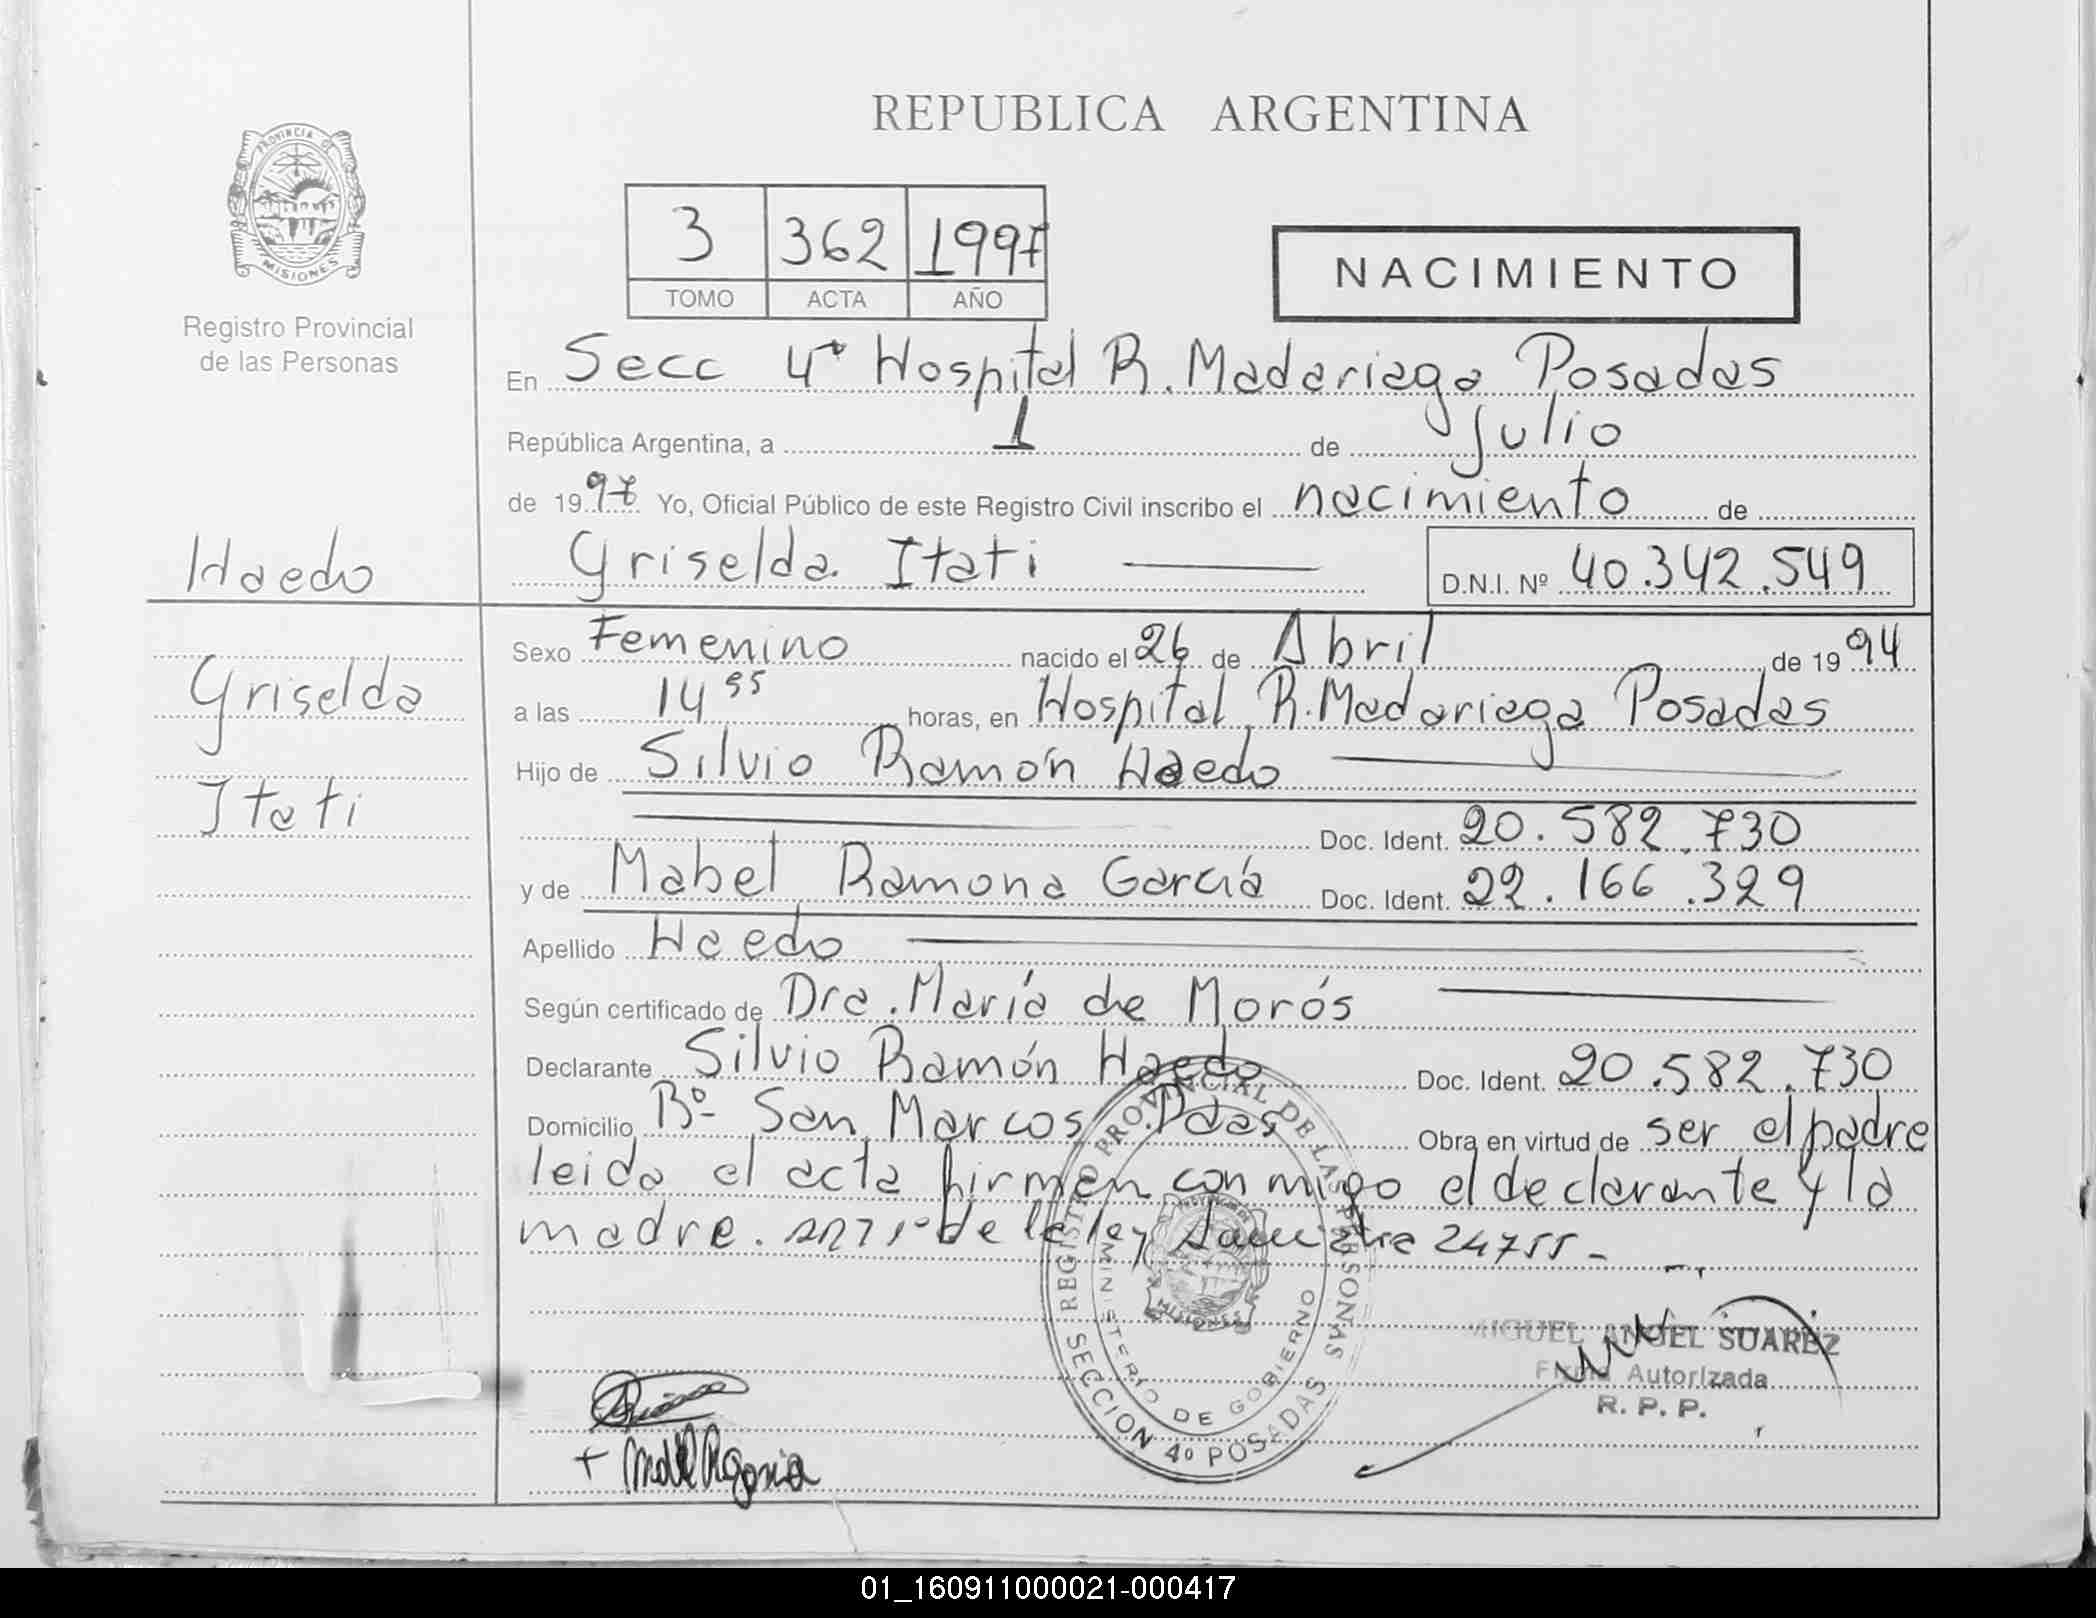 REPUBLICA ARGENTINA
PROVINCIA DE
MISIONES
Registro Provincial
de las Personas
3 362 1997
TOMO ACTA AÑO
NACIMIENTO
En Secc 4ª Hospital R. Madariaga Posadas
República Argentina, a 1 de Julio
de 1997 Yo, Oficial Público de este Registro Civil inscribo el nacimiento de
Haedo
Griselda Itati D.N.I. Nº 40.342.549
Sexo Femenino nacido el 26 de Abril de 1994
Griselda
a las 14 55 horas, en Hospital R. Madariaga Posadas
Hijo de Silvio Ramón Haedo
Itati
Doc. Ident. 20.582.730
y de Mabel Ramona García Doc. Ident. 22.166.329
Apellido Haedo
Según certificado de Dra. María de Morós
Declarante Silvio Ramón Haedo Doc. Ident. 20.582.730
Domicilio Bº San Marcos Pdas Obra en virtud de ser el padre
leida el acta firman conmigo el declarante y la
madre. de la ley 24755-
REGISTRO PROVINCIAL DE LAS PERSONAS
MINISTERIO DE GOBIERNO
MISIONES
SECCION 4º POSADAS
MIGUEL ANGEL SUAREZ
Firma Autorizada
R. P. P.
01_160911000021-000417